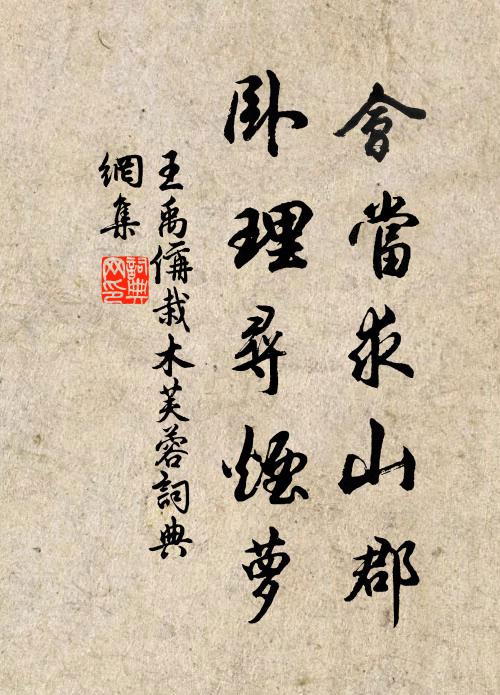 會當求山郡
臥理尋煙夢
王禹偁栽木芙蓉詞典
網集
詞典網印